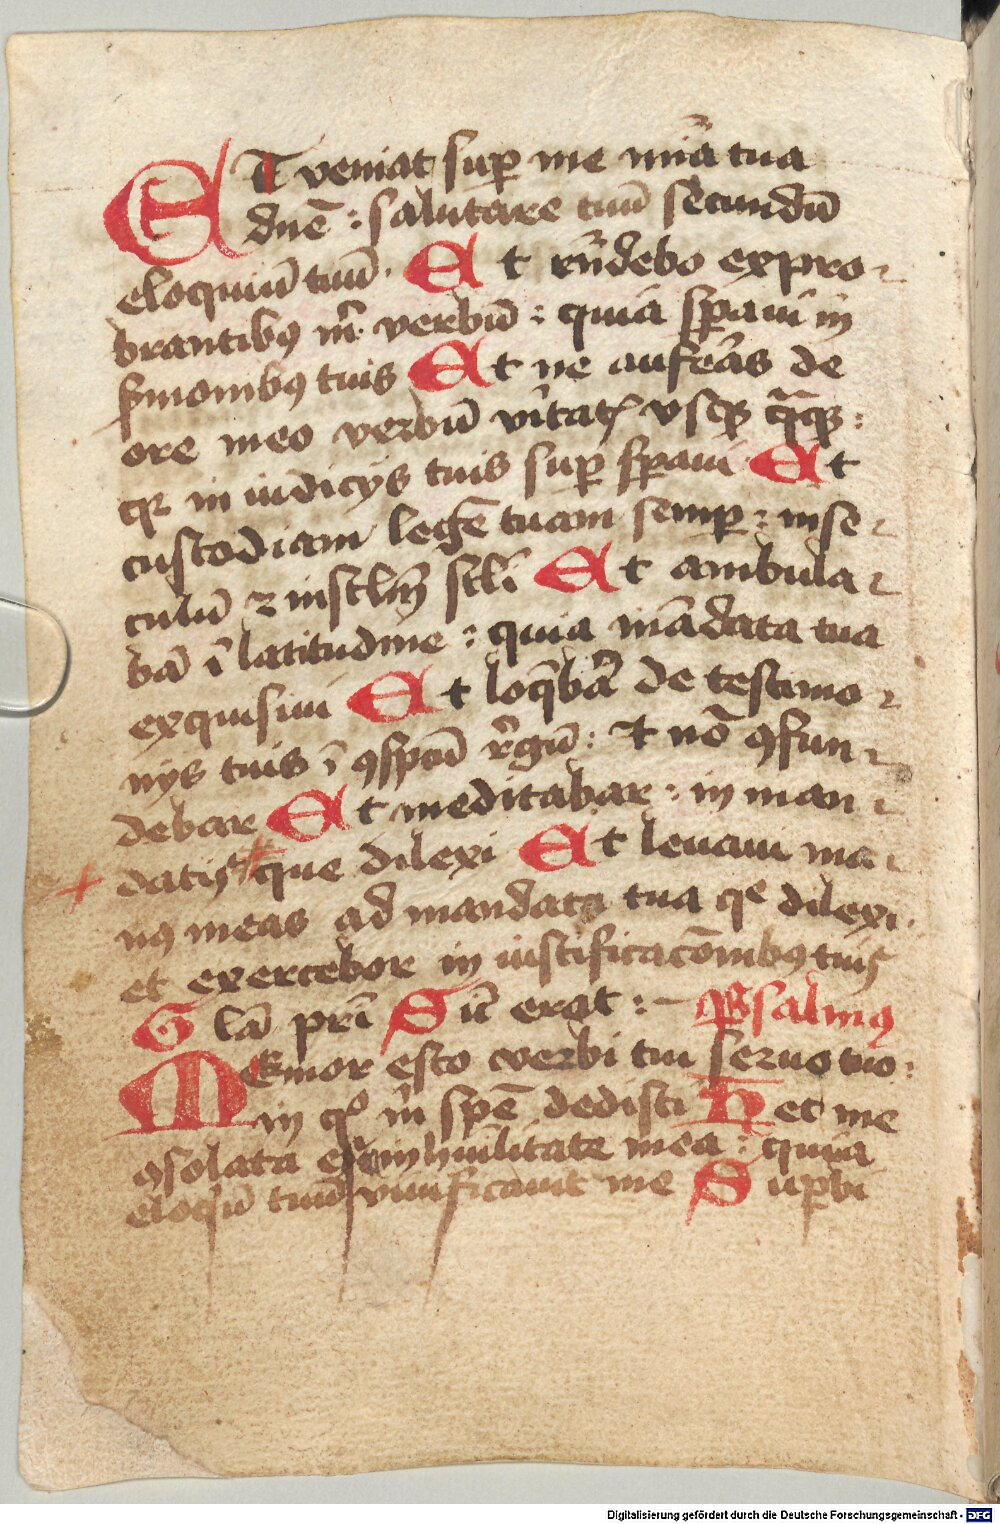 ET veniat sup me mia tua
dne : salutare tuū secundū
eloquiū tuū · Et rn̄debo expro-
brantibꝯ m̄ · verbū : quia sꝑaui in
ẜmonibꝯ tuis Et ne auferas de
ore meo verbū v̾itatꝭ vsqꝫ q̄qꝫ :
qꝛ in iudicijs tuis suꝑ sꝑaui Et
custodiam legē tuam semꝑ : in se-
culū ⁊ in sclm̄ scli Et ambula-
bā ī latitudine : quia mādata tua
exquisiui Et loq̄bar de testimo-
nijs tuis ī ꝯspcū r̄gū : et nō ꝯfun-
debar Et meditabar : in man-
datis tuis que dilexi Et leuaui ma-
nꝯ meas ad mandata tua qͤ dilexi ·
et exercebor in iustificacōnibꝯ tuis
Glā pri Sic̄ erat : - Psalmus
MEmor esto verbi tui seruo tuo :
in qͦ m̄ spē dedisti Hec me
ꝯsolata est in humilitate mea : quia
eloqiū tuū viuificauit me Suꝑbi
Digitalisierung gefördert durch die Deutsche Forschungsgemeinschaft - DFG